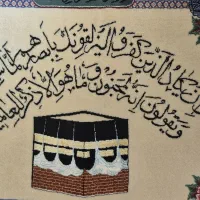 وان يكاد الذين كفروا ليزلقونك بابصارهم لما
ويقولون انه لمجنون وما هو الا ذكر للعالمين